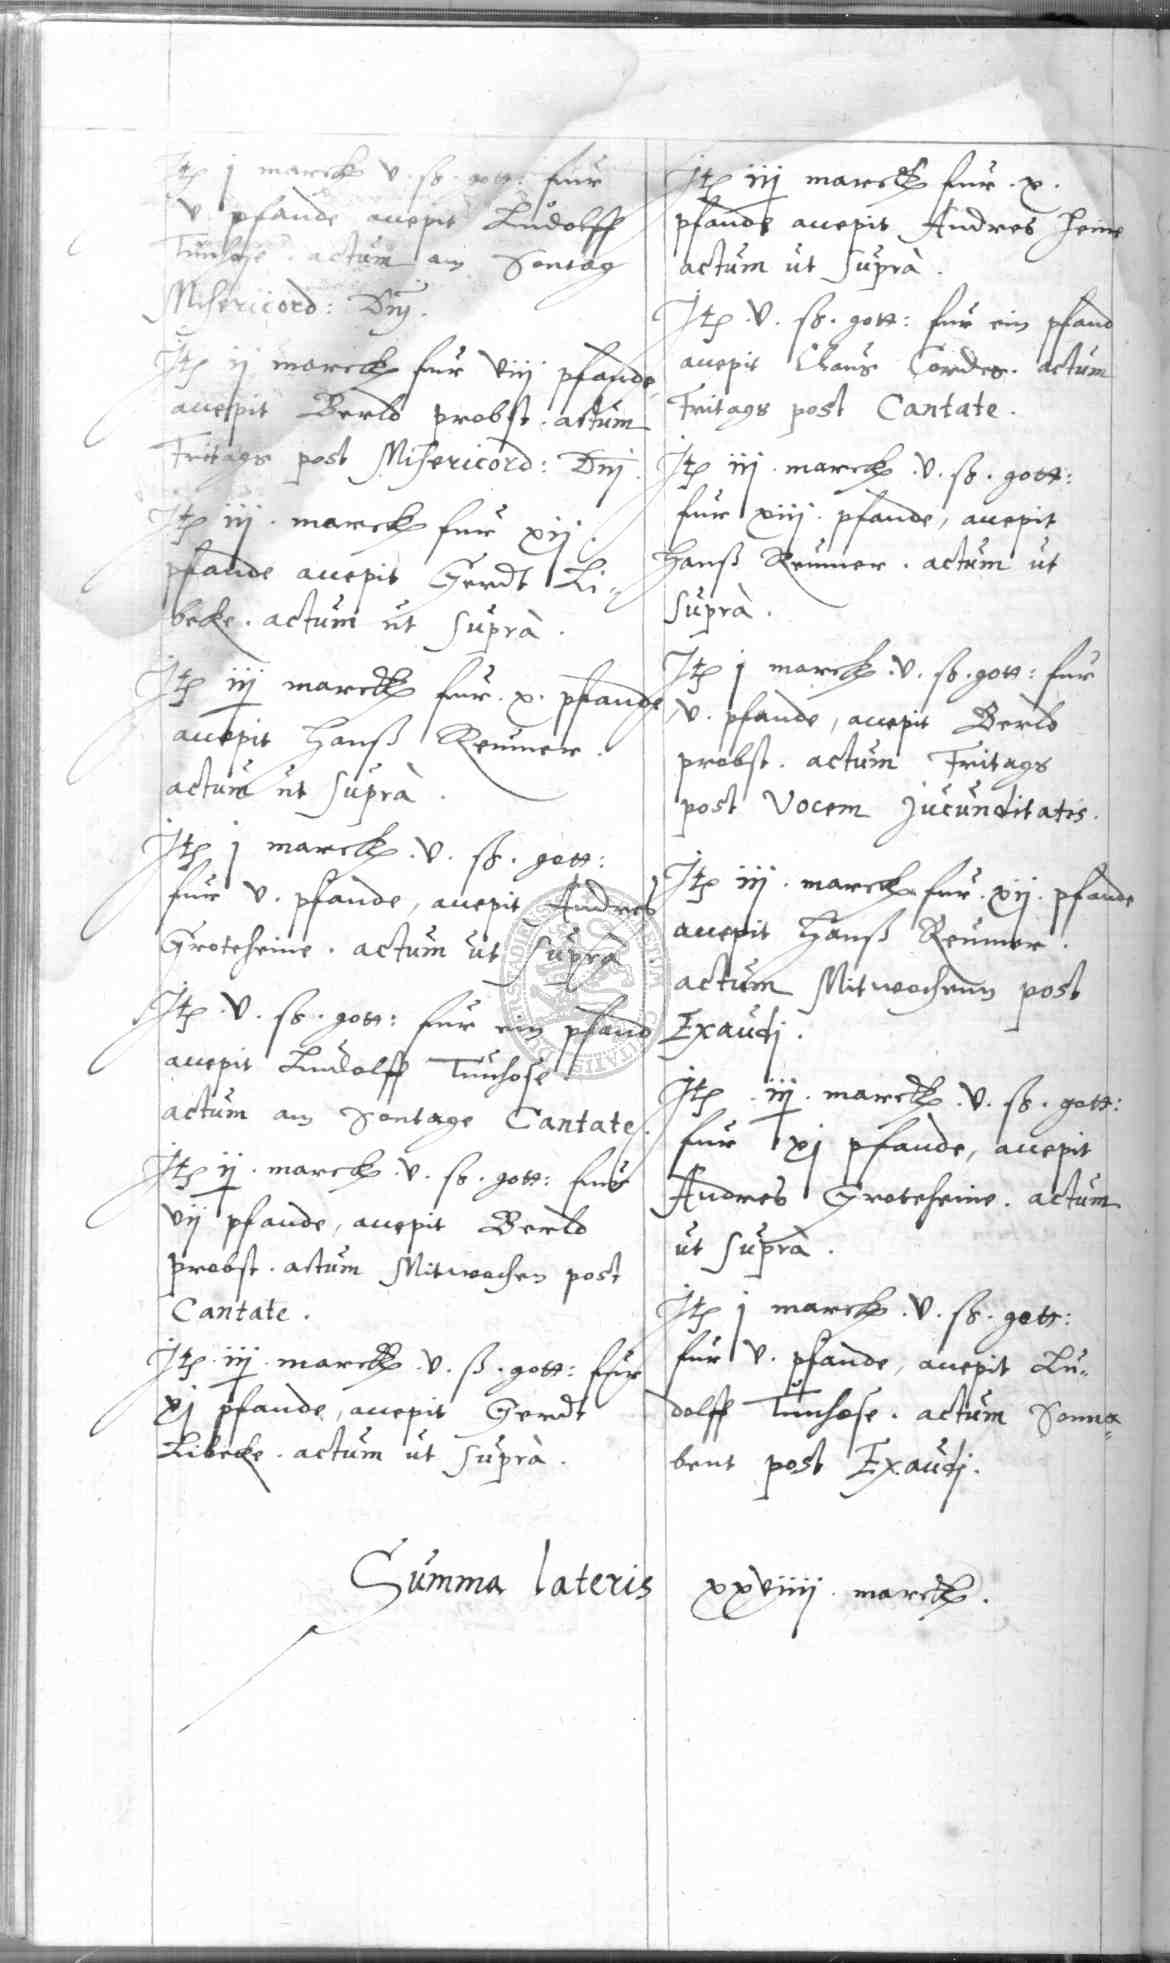 Jtem j marck v. ß. gott: fur
v. pfande accepit Ludolff
Tunhose. actum am Sontag
Misericord: Dnj.
Jtem ij marck fur viij pfande
accepit Berld probst. actum
Fritags post Misericord: Dnj.
Jtem iij. marck fur xij.
pfande accepit Gerdt Li-
becke. actum ut suprà.
Jtem iij marck fur. x. pfande
accepit Hanß Reumer.
actum ut suprà.
Jtem j marck. v. ß. gott:
fur v. pfande, accepit Andres
Groteheine. actum ut suprà
Jtem. v. ß. gott: fur ein pfand
accepit Ludolff Tunhose.
actum am Sontage Cantate.
Jtem ij. marck. v. ß. gott: fur
vij pfande, accepit Berld
probst. actum Mitwochen post
Cantate.
Jtem. iij. marck. v. ß. gott: fur
xj pfande, accepit Gerdt
Libecke. actum ut suprà.
Jtem iij marck fur. x.
pfande accepit Andres Heine
actum ut suprà.
Jtem. v. ß. gott: fur ein pfand
accepit Claus Cordes. actum
Fritags post Cantate.
Jtem iij. marck. v. ß. gott:
fur xiij. pfande, accepit
Hanß Reumer. actum ut
suprà.
Jtem j marck. v. ß. gott: fur
v. pfande, accepit Berld
probst. actum Fritags
post Vocem Jucunditatis.
Jtem iij. marck fur. xij. pfande
accepit Hanß Reumer.
actum Mitwochenn post
Exaudj.
Jtem. iij. marck. v. ß. gott:
fur xj pfande, accepit
Andres Groteheine. actum
ut suprà.
Jtem j marck. v. ß. gott:
fur v. pfande, accepit Lu-
dolff Tunhose. actum Sonna-
bent post Exaudj.
Summa lateris xxviiij. marck.